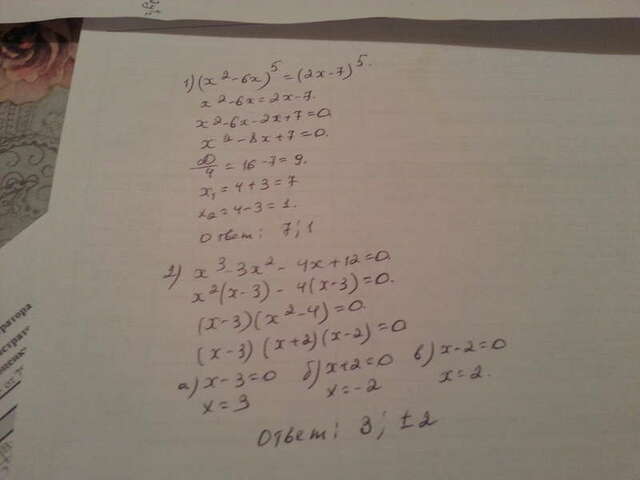 1) (x²-6x)⁵=(2x-7)⁵.
x²-6x=2x-7.
x²-6x-2x+7=0.
x²-8x+7=0.
D/4=16-7=9.
x₁=4+3=7
x₂=4-3=1.
Ответ: 7; 1
2) x³-3x²-4x+12=0.
x²(x-3)-4(x-3)=0.
(x-3)(x²-4)=0.
(x-3)(x+2)(x-2)=0
а) x-3=0 б) x+2=0 в) x-2=0
x=3 x=-2 x=2.
Ответ: 3; ±2